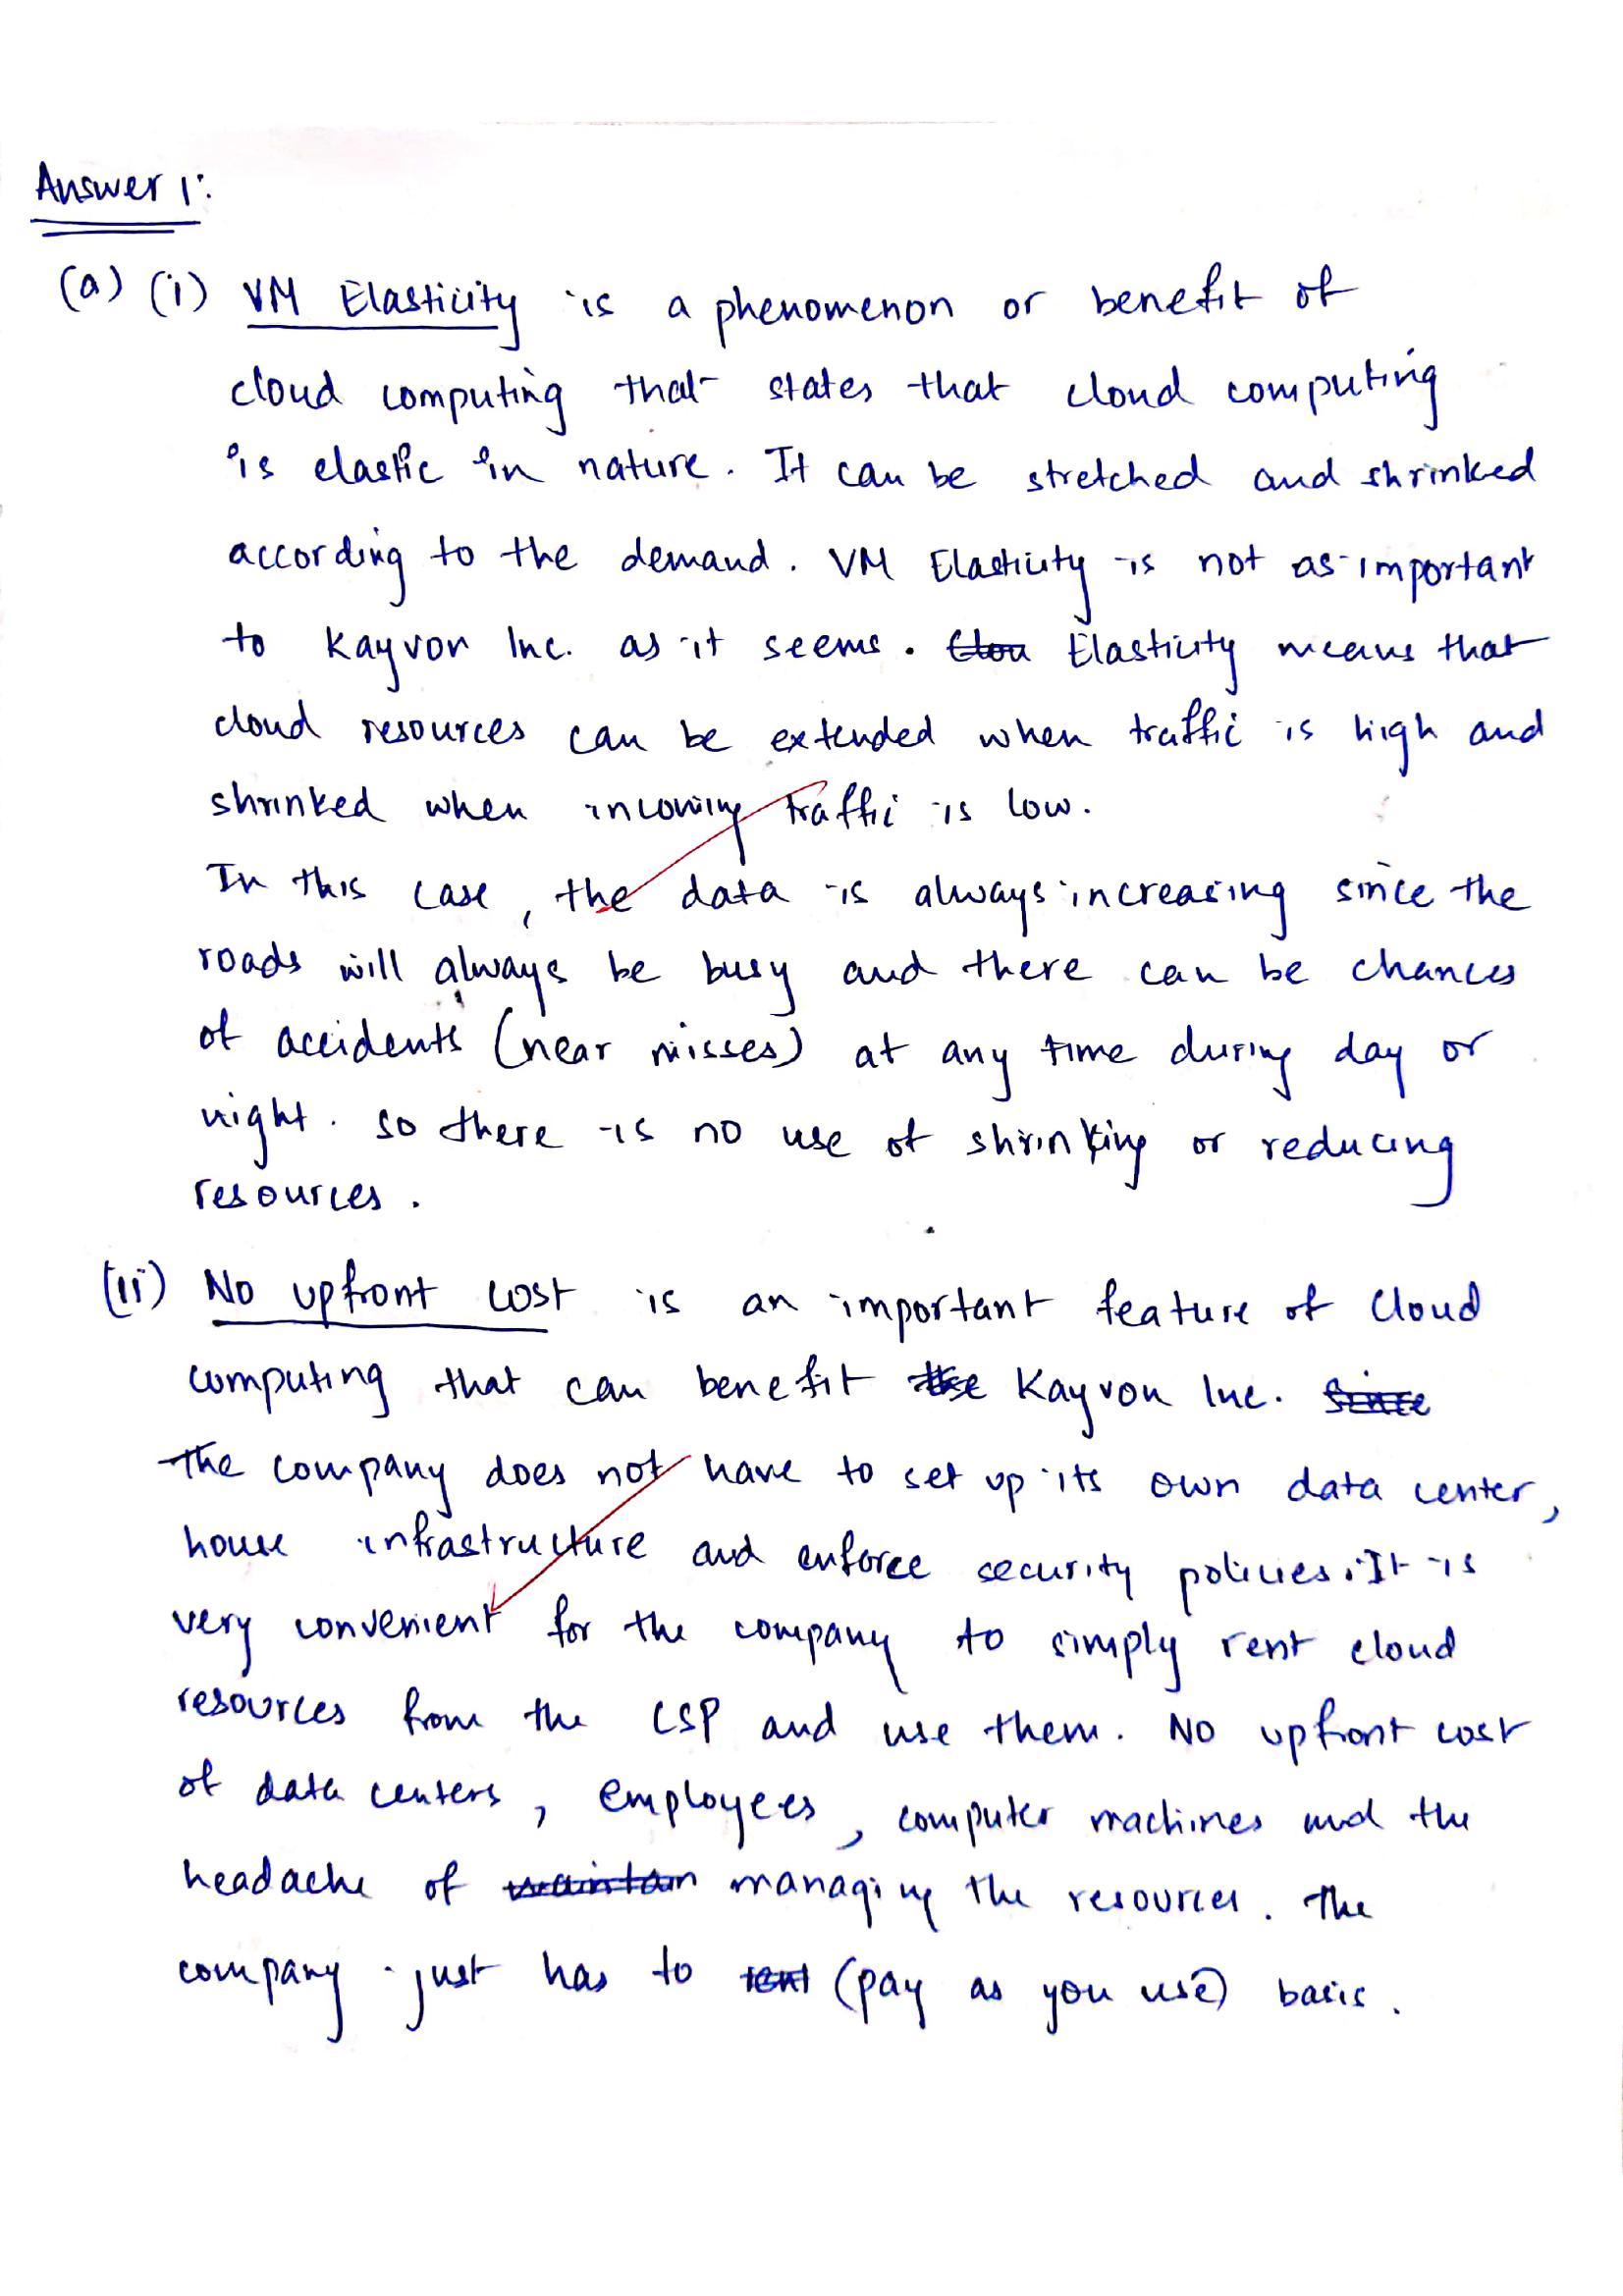 Answer 1:
(a) (i) VM Elasticity is a phenomenon or benefit of
cloud computing that states that cloud computing
is elastic in nature. It can be stretched and shrinked
according to the demand. VM Elasticity is not as important
to Kayvon Inc. as it seems. Elasticity means that
cloud resources can be extended when traffic is high and
shrinked when incoming traffic is low.
In this case, the data is always increasing since the
roads will always be busy and there can be chances
of accidents (near misses) at any time during day or
night. So there is no use of shrinking or reducing
resources.
(ii) No upfront cost is an important feature of cloud
computing that can benefit Kayvon Inc.
The company does not have to set up its own data center,
house infrastructure and enforce security policies. It is
very convenient for the company to simply rent cloud
resources from the CSP and use them. No upfront cost
of data centers, employees, computer machines and the
headache of managing the resources. The
company just has to (pay as you use) basis.